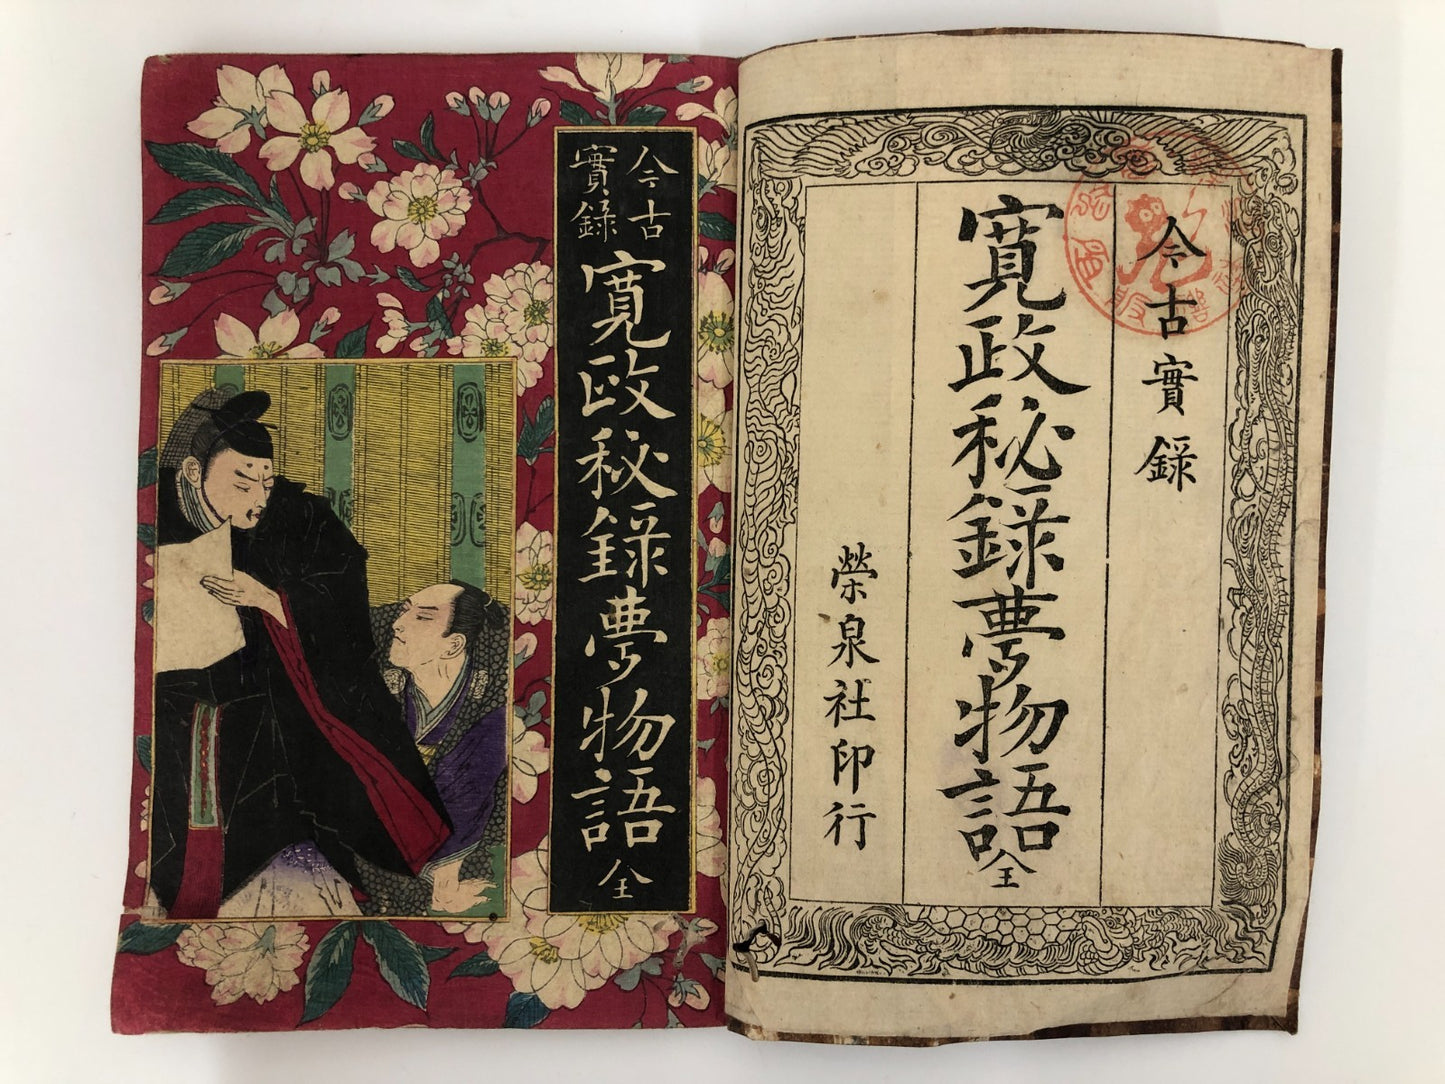 今古實録
寛政秘録夢物語全
榮泉社印行
今古
實録
寛政秘録夢物語全